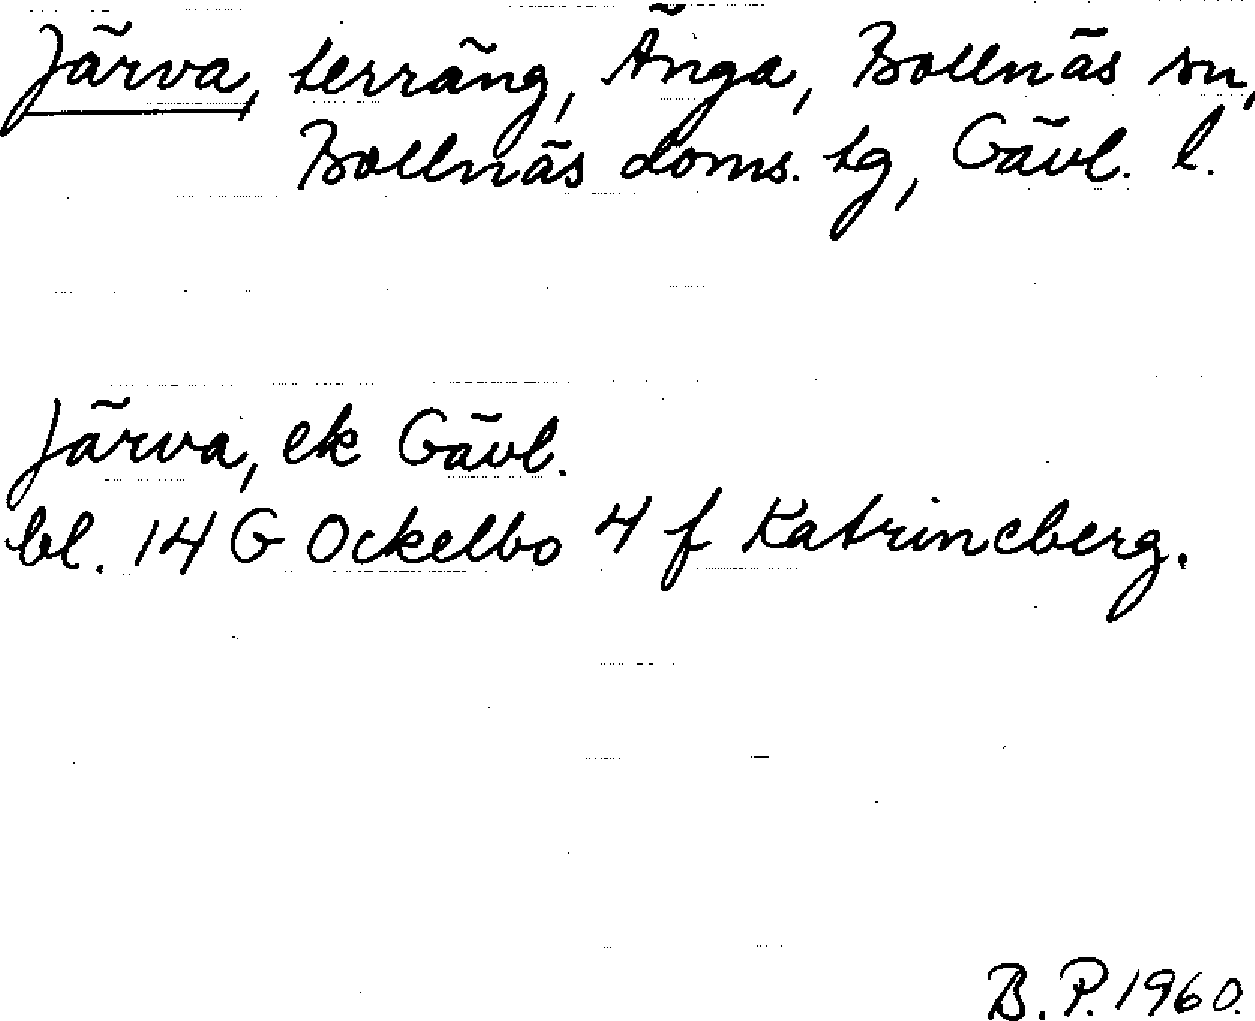 Järva, terräng, Änga, Bollnäs sn,
Bollnäs doms. tg, Gävl. l.
Järva, ek Gävl.
bl. 14 G Ockelbo 4 f Katrineberg.
B. P. 1960.